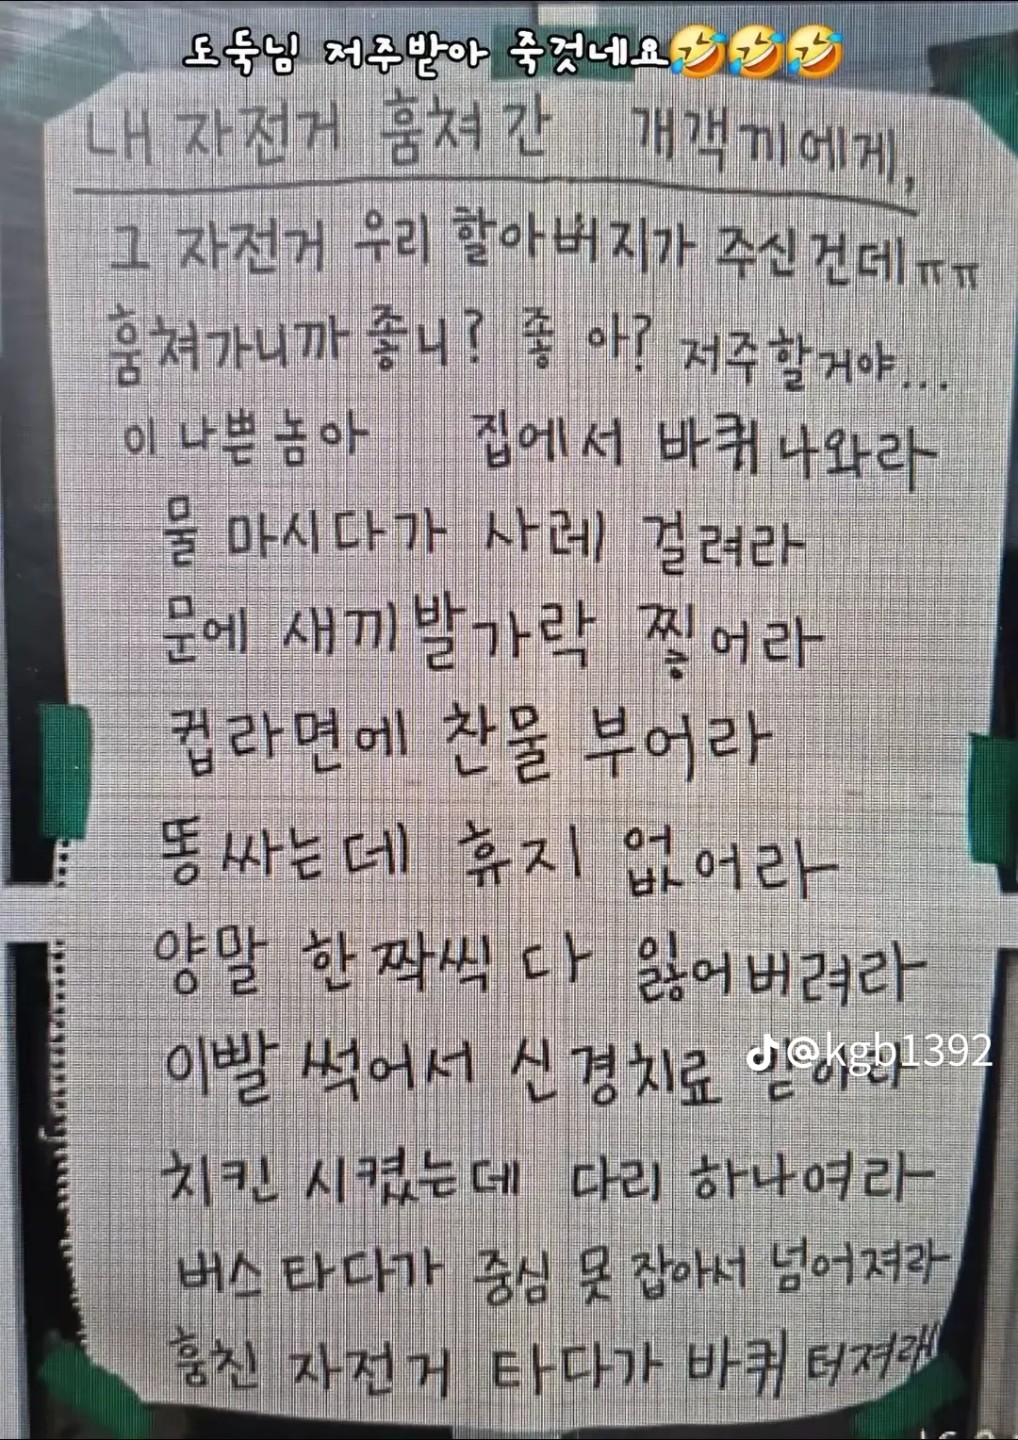 도둑님 저주받아 죽것네요🤣🤣🤣
내 자전거 훔쳐 간 개객끼에게,
그 자전거 우리 할아버지가 주신건데ㅠㅠ
훔쳐가니까 좋니? 좋 아? 저주할거야...
이 나쁜 놈아 집에서 바퀴 나와라
물 마시다가 사레 걸려라
문에 새끼발가락 찧어라
컵라면에 찬물 부어라
똥 싸는데 휴지 없어라
양말 한 짝씩 다 잃어버려라
이빨 썩어서 신경치료
@kgb1392
치킨 시켰는데 다리 하나여라
버스 타다가 중심 못 잡아서 넘어져라
훔친 자전거 타다가 바퀴